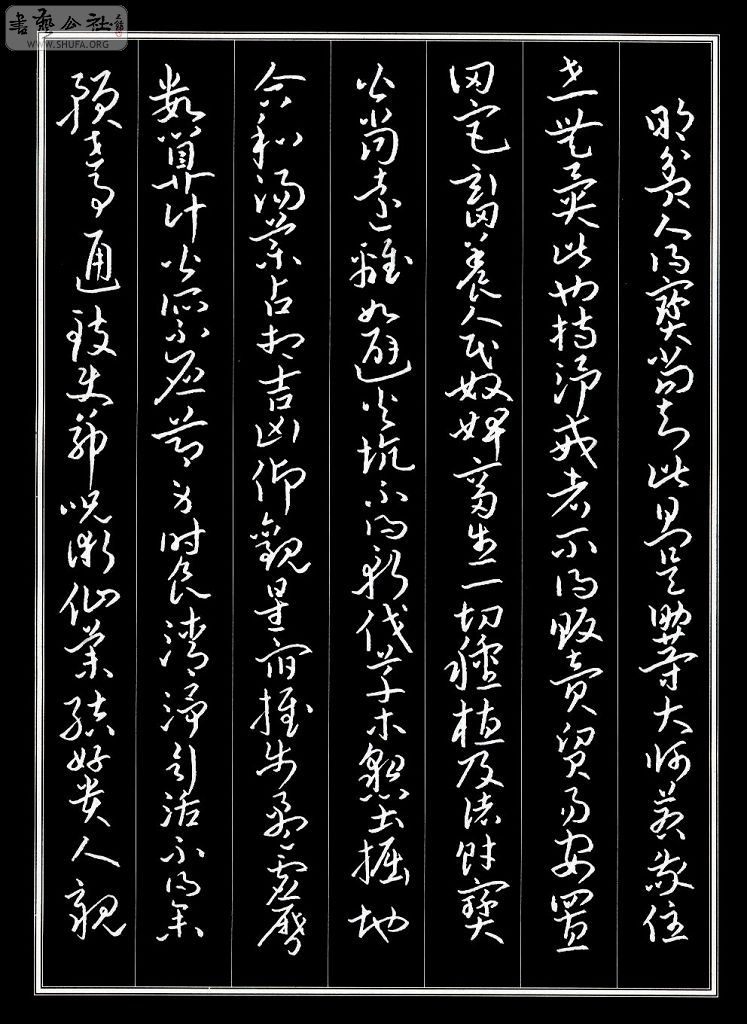 書藝公社
WWW.SHUFA.ORG
明貧人得寶當知此則是汝等大師若我住
世無異此也持淨戒者不得販賣貿易安置
田宅畜養人民奴婢畜生一切種植及諸財寶
皆當遠離如避火坑不得斬伐草木墾土掘地
合和湯藥占相吉凶仰觀星宿推步盈虛曆
數算計皆所不應節身時食清淨自活不得參
預世事通致使命呪術仙藥結好貴人親